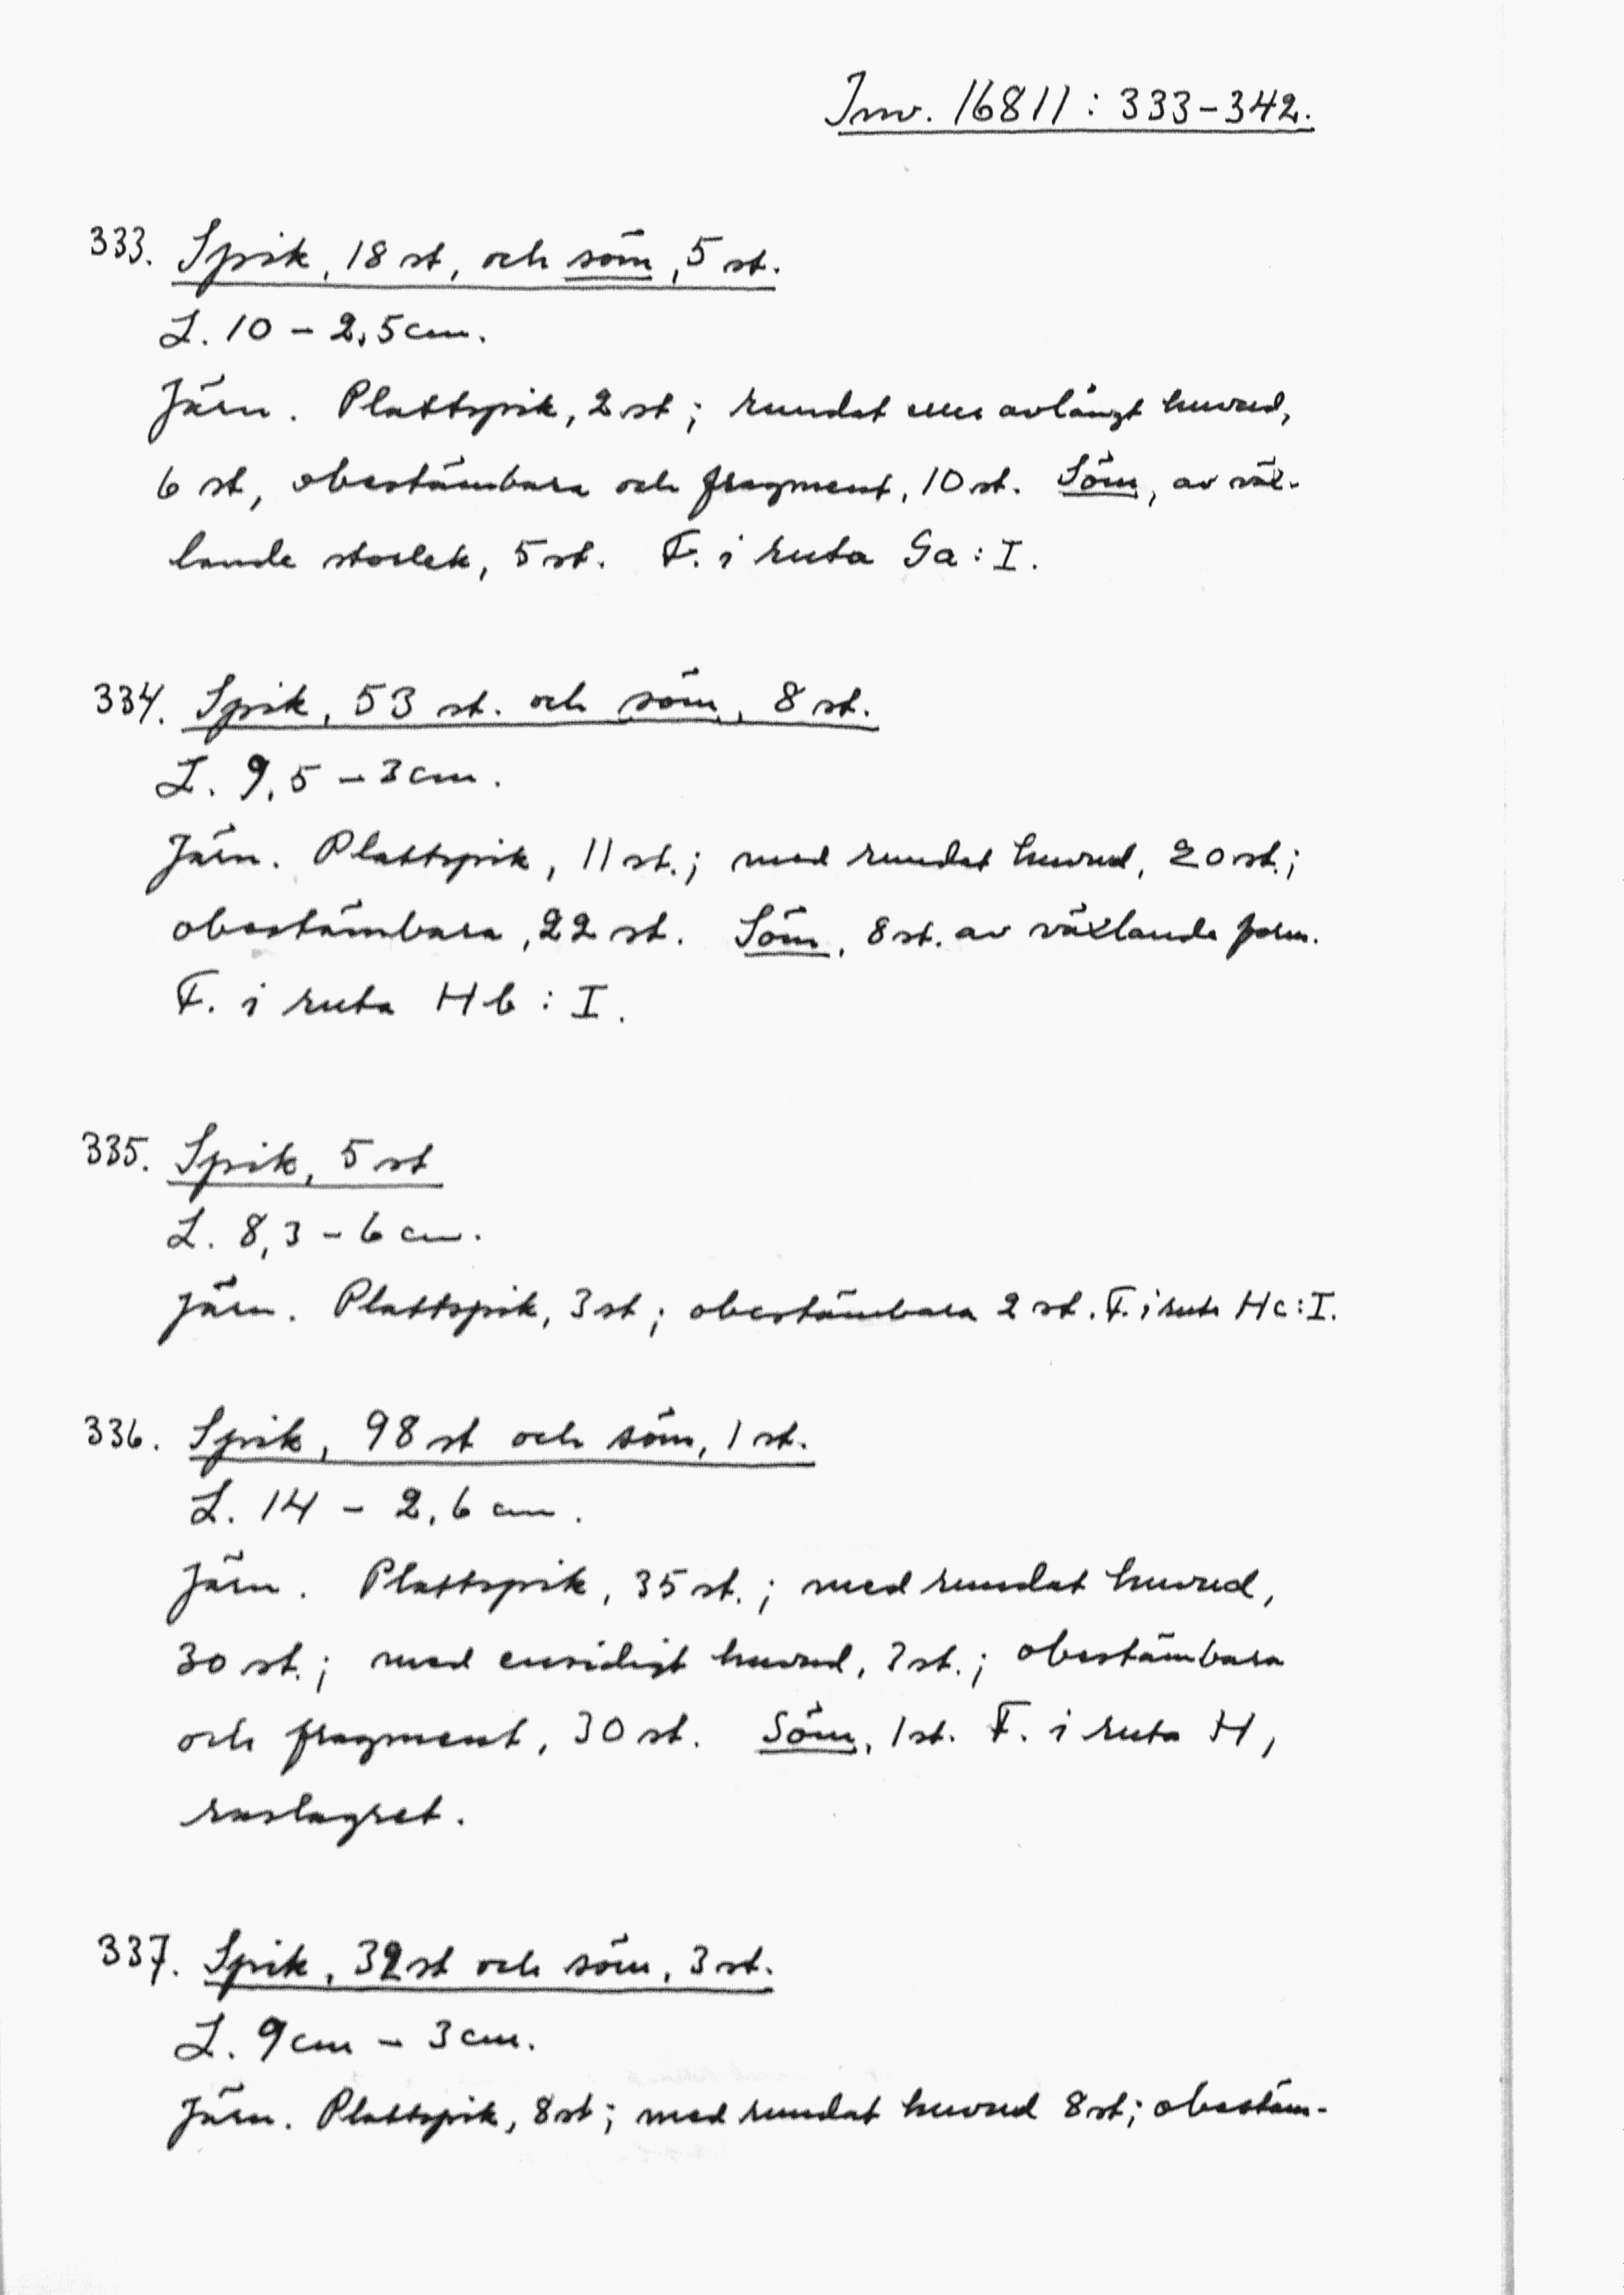 Inv. 16811: 333-342.
333. Spik, 18 st, och söm, 5 st.
L. 10 - 2,5 cm.
Järn. Plattspik, 2 st; rundat eller avlångt huvud,
6 st, obestämbara och fragment, 10 st. Söm, av väx-
lande storlek, 5 st. F. i ruta Ga: I.
334. Spik, 53 st. och söm, 8 st.
L. 9,5 - 3 cm.
Järn. Plattspik, 11 st.; med rundat huvud, 20 st.;
obestämbara, 22 st. Söm, 8 st. av växlande form.
F. i ruta Hb: I.
335. Spik, 5 st
L. 8,3 - 6 cm.
Järn. Plattspik, 3 st; obestämbara 2 st. F. i ruta Hc: I.
336. Spik, 98 st och söm, 1 st.
L. 14 - 2,6 cm.
Järn. Plattspik, 35 st.; med rundat huvud,
30 st.; med ensidigt huvud, 3 st.; obestämbara
och fragment, 30 st. Söm, 1 st. F. i ruta H,
raslagret.
337. Spik, 32 st och söm, 3 st.
L. 9 cm - 3 cm.
Järn. Plattspik, 8 st; med rundat huvud 8 st; obestäm-